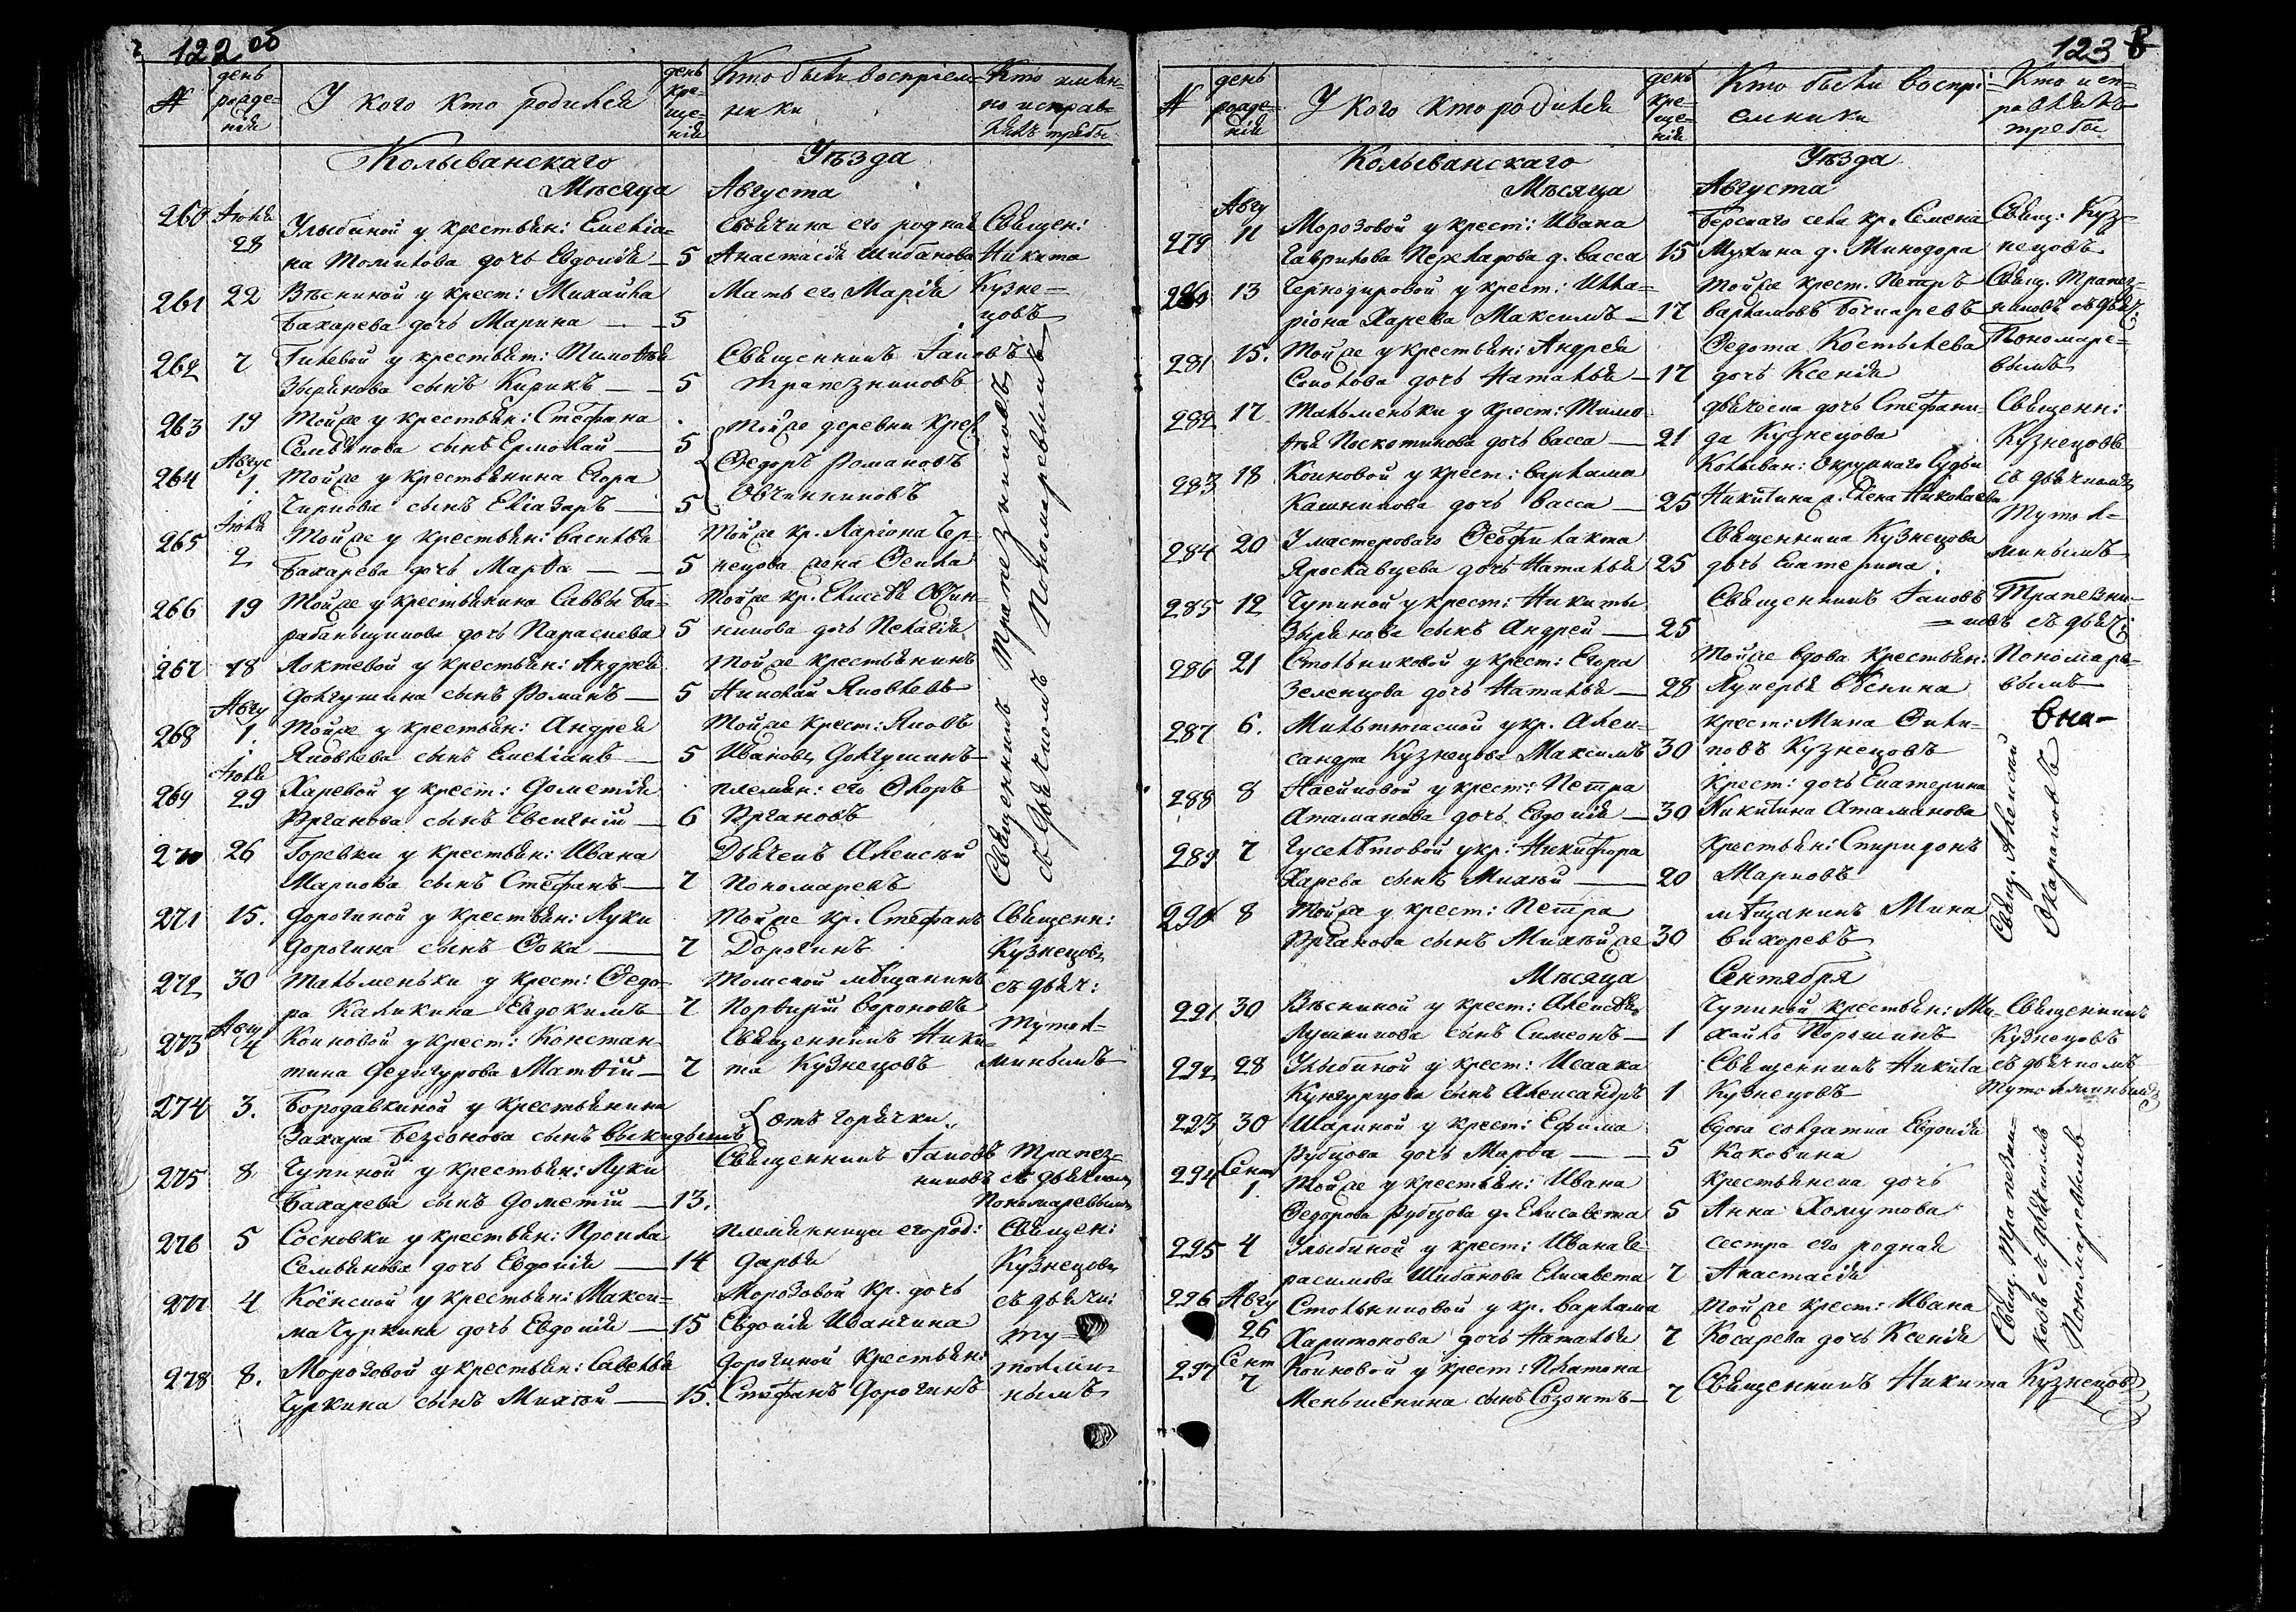 122 об
№
день рожденія
У кого кто родился
день крещенія
Кто были воспріемники
Кто имянно исправлялъ требы
Колыванскаго Уѣзда
Мѣсяца Августа
260 Іюля 28 Улыбиной у крестьян: Емелья- Своячина его родная Священ:
на Томилова дочь Евдокія 5 Анастасія Шибанова Никита
261 22 Вѣсниной у крест: Михайла Мать его Марія Кузне-
Бахарева дочь Марина 5 цовъ
262 7 Гилевой у крестьян: Тимоѳея Священникъ Іаковъ
Зырянова сынъ Кирикъ 5 Трапезниковъ
263 19 Тойже у крестьян: Стефана Тойже деревни крес
Семьянова сынъ Ермолай 5 Ѳедоръ Романовъ
264 Авгус 1. Тойже у крестьянина Егора Овчинниковъ
Чиркова сынъ Еліазаръ 5
265 Іюля 2 Тойже у крестьян: Василья Тойже кр. Ларіона Чер-
Бахарева дочь Марѳа 5 нецова жена Ѳекла
266 19 Тойже у крестьянина Саввы Ба- Тойже кр. Елисѣя Овчин-
рабаньщикова дочь Параскева 5 никова дочь Пелагія
267 18 Локтевой у крестьян: Андрея Тойже крестьянинъ
Долгушина сынъ Романъ 5 Николай Яковлевъ
268 Авгу 1. Тойже у крестьян: Андрея Тойже крест: Яковъ
Яковлева сынъ Емеліанъ 5 Ивановъ Долгушинъ
269 Іюля 29 Харевой у крест: Дометія племян: его Ѳлоръ
Ярганова сынъ Евсигній 6 Яргановъ
270 26 Горевки у крестьян: Ивана Дьячекъ Алексѣй
Маркова сынъ Стефанъ 7 Пономаревъ
Священникъ Трапезниковъ
съ дьячкомъ Пономаревымъ
271 15. Дорогиной у крестьян: Луки Тойже кр. Стефанъ Священн:
Дорогина сынъ Ѳока 7 Дорогинъ Кузнецовъ
272 30 Тальменьки у крест: Ѳедо- Томской мѣщанинъ съ дьяч:
ра Каликина Евдокимъ 7 Порфирій Вороновъ Тутол-
273 Авгу 4 Коиновой у крест: Констан- Священникъ Ники- минымъ
тина Федигурова Матѳій 7 та Кузнецовъ
274 3. Бородавкиной у крестьянина отъ горячки
Захара Безсонова сынъ выкидышъ
275 8 Чупиной у крестьян: Луки Священникъ Іаковъ Трапез-
никовъ съ дьячкомъ
Бахарева сынъ Дометій 13. Пономаревымъ
276 5 Сосновки у крестьян: Прокла племянница его род: Священ:
Семьянова дочь Евдокія 14 Дарья Кузнецовъ
277 4 Коёнской у крестьян: Макси- Морозовой кр. дочь съ дьячк:
ма Чуркина дочь Евдокія 15 Евдокія Иванчина ту-
278 8. Морозовой у крестьян: Савелья Дорогиной крестьян: толми-
Чуркина сынъ Михѣй 15. Стефанъ Дорогинъ нымъ
123
№
день рожденія
У кого кто родился
день крещенія
Кто были воспріемники
Кто исправлялъ требы
Колыванскаго Уѣзда
Мѣсяца Августа
279 Авгу 11 Морозовой у крест: Ивана Берскаго села кр. Семена Свящ: Куз-
Гаврилова Перехарова д. Васса 15 Мухина д. Минодора нецовъ
280 13 Чернодыровой у крест: Илла- Тойже крест. Петръ Свящ. Трапез-
ріона Харева Максимъ 17 Варламовъ Бочкаревъ никовъ съ дьяч.
281 15. Тойже у крестьян: Андрея Ѳедота Костылева Пономаре-
Соколова дочь Наталья 17 дочь Ксенія вымъ
282 17 Тальменьки у крест: Тимо- дьяческа дочь Стефани- Священн:
ѳея Поскотинова дочь Васса 21 да Кузнецова Кузнецовъ
283 18 Коиновой у крест: Варлама Колыван: Окружнаго Судьи съ дьячкомъ
Кашникова дочь Васса 25 Никитина ж. Елена Николаева Тутол-
284 20 У мастероваго Ѳеофилакта Священника Кузнецова минымъ
Ярославцева дочь Наталья 25 дочь Екатерина
285 12 Чупиной у крест: Никиты Священникъ Іаковъ Трапезни-
Зырянова сынъ Андрей 25 ковъ съ дьяч:
286 21 Стольниковой у крест: Егора Тойже вдова крестьян: Пономаре-
Зеленцова дочь Наталья 28 Лукерья Вѣснина вымъ
287 6. Мильтюшской у кр. Алек- крест: Мина Фили-
сандра Кузнецова Максимъ 30 повъ Кузнецовъ
288 8 Наеиновой у крест: Петра крест: дочь Екатерина
Атаманова дочь Евдокія 30 Никитина Атаманова
289 7 Гуселѣтовой у кр: Никифора крестьян: Спиридонъ
Харева сынъ Михѣй 20 Марковъ
290 8 Тойже у крест: Петра мѣщанинъ Мина
Ярганова сынъ Михѣй же 30 Вихоревъ
Свящ. Алексѣй
Мѣсяца Сентября
291 30 Вѣсниной у крест: Алексѣя Чупиной крестьян: Ми- Священникъ
Лушникова сынъ Симеонъ 1 хайло Порошинъ Кузнецовъ
292 28 Улыбиной у крест: Исаака Священникъ Никита съ дьячкомъ
Кунгурцова сынъ Александръ 1 Кузнецовъ Тутолминымъ
293 30 Шариной у крест: Ефима вдова солдатка Евдокія
Рубцова дочь Марѳа 5 Коковина
294 Сент 1. Тойже у крестьян: Ивана Крестьянска дочь
Ѳедорова Рубцова д. Елисавета 5 Анна Хомутова
295 4 Улыбиной у крест: Ивана Ге- сестра его родная
расимова Шибанова Елисавета 7 Анастасія
296 Авгу 26 Стольниковой у кр. Варлама Тойже крест: Ивана
Харитонова дочь Наталья 7 Косарева дочь Ксенія
Свящ. Трапезни-
ковъ съ дьячкомъ
Пономаревымъ
297 Сент 7 Коиновой у крест: Платона Священникъ Никита Кузнецовъ
Меньшенина сынъ Созонтъ 7